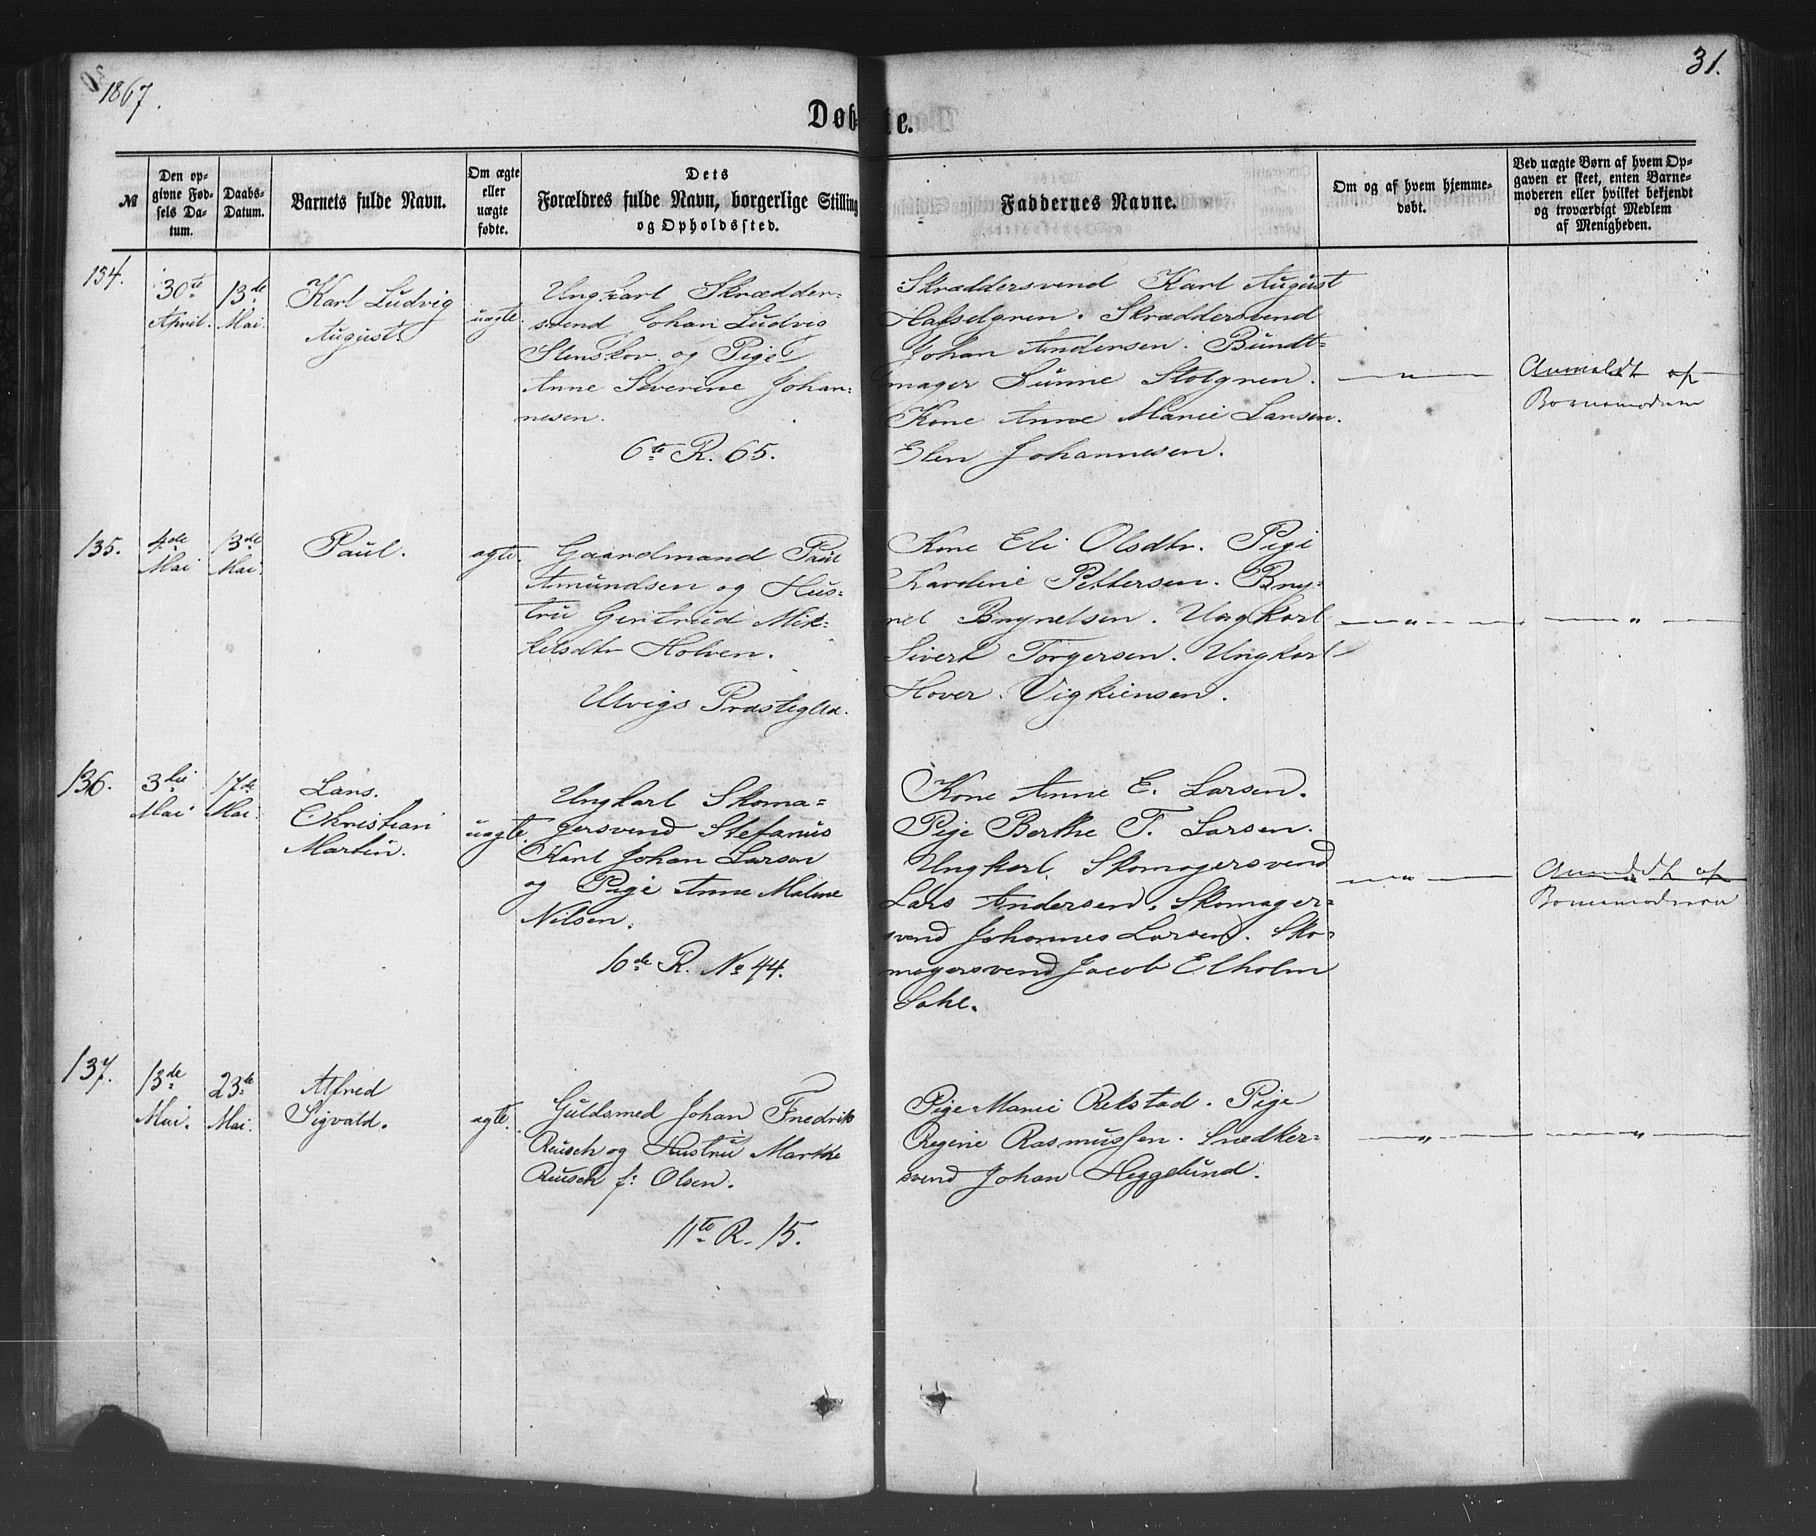 1867.
31.
Døbte.
№
Den op-
givne Fød-
sels Da-
tum.
Daabs-
Datum.
Barnets fulde Navn.
Om ægte
eller
uægte
fødte.
Dets
Forældres fulde Navn, borgerlige Stilling
og Opholdssted.
Faddernes Navne.
Om og af hvem hjemme-
døbt.
Ved uægte Børn af hvem Op-
gaven er skeet, enten Barne-
moderen eller hvilket bekjendt
og troværdigt Medlem
af Menigheden.
134.
30te
April.
13de
Mai.
Karl Ludvig
August.
uægte.
Ungkarl Skrædder-
svend Johan Ludvig
Stenskov og Pige
Anne Severine Johan-
nesen.
6te R. 65.
Skræddersvend Karl August
Hafselgren. Skræddersvend
Johan Andersen. Bundt-
mager Sunne Stolgren.
Kone Anne Marie Larsen.
Elen Johannesen.
— " —
Anmeldt af
Barnemoderen
135.
4de
Mai
13de
Mai.
Paul.
ægte.
Gaardmand Paul
Amundsen og Hus-
tru Gertrud Mik-
kelsdtr Holven.
Ulvigs Præstegld.
Kone Eli Olsdtr. Pige
Karoline Pettersen. Bry-
nel Brynelsen. Ungkarl
Sivert Torgersen. Ungkarl
Hover Vigkiensen.
— " —
— " —
136.
3die
Mai
17de
Mai.
Lars
Christian
Martin.
uægte.
Ungkarl Skoma-
gersvend Stefanus
Karl Johan Larsen
og Pige Anne Malene
Nilsen.
10de R. No 44.
Kone Anne E. Larsen.
Pige Berthe T. Larsen.
Ungkarl, Skomagersvend
Lars Andersen. Skomager-
svend Johannes Larsen. Sko-
magersvend Jacob Elholm
Sahl.
— " —
Anmeldt af
Barnemoderen
137.
13de
Mai.
23de
Mai.
Alfred
Sigvald.
ægte.
Guldsmed Johan Fredrik
Reusch og Hustru Marthe
Reusch f: Olsen.
11te R. 15.
Pige Marie Rekstad. Pige
Regine Rasmussen. Snedker-
svend Johan Heggelund.
— " —
— " —